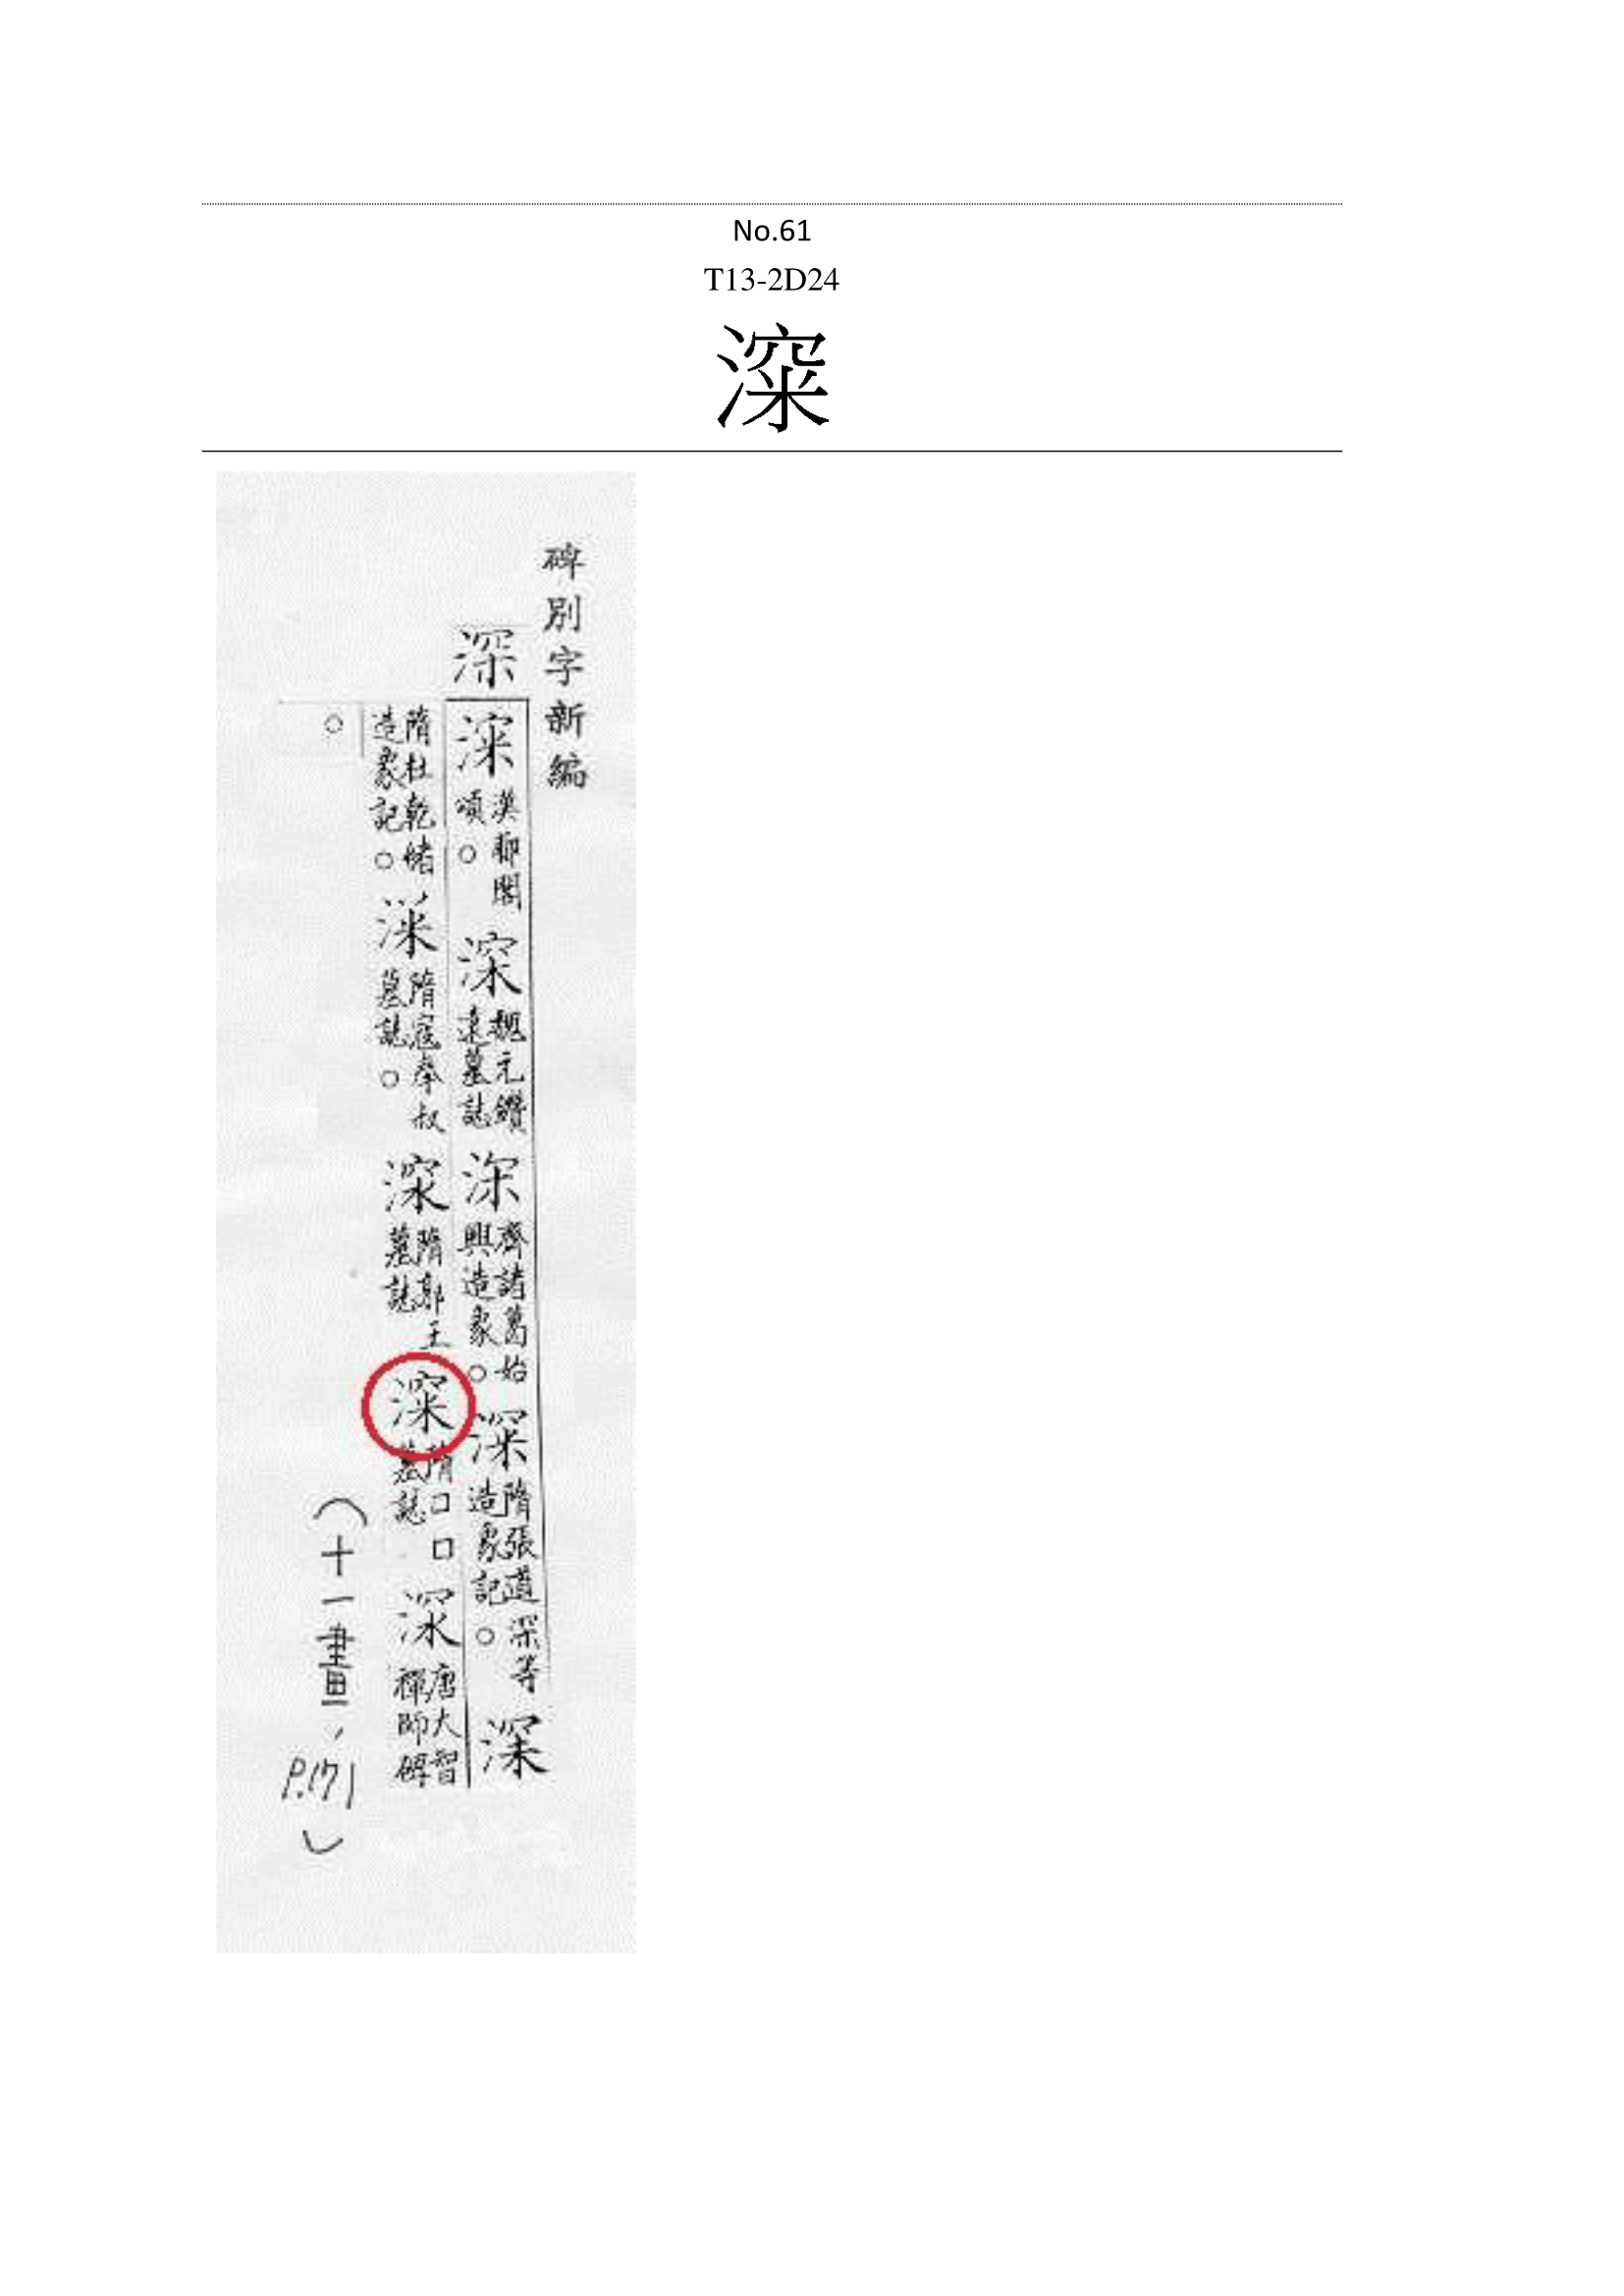 No.61
T13-2D24
碑別字新編
深
漢郙閣頌○
魏元鑽遠墓誌
齊諸葛始興造象○
隋張道深等造象記○
深
隋杜乾緒造象記○
隋寇奉叔墓誌○
隋郭王墓誌
隋口口墓誌
唐大智禪師碑
○
(十一畫、P.171)